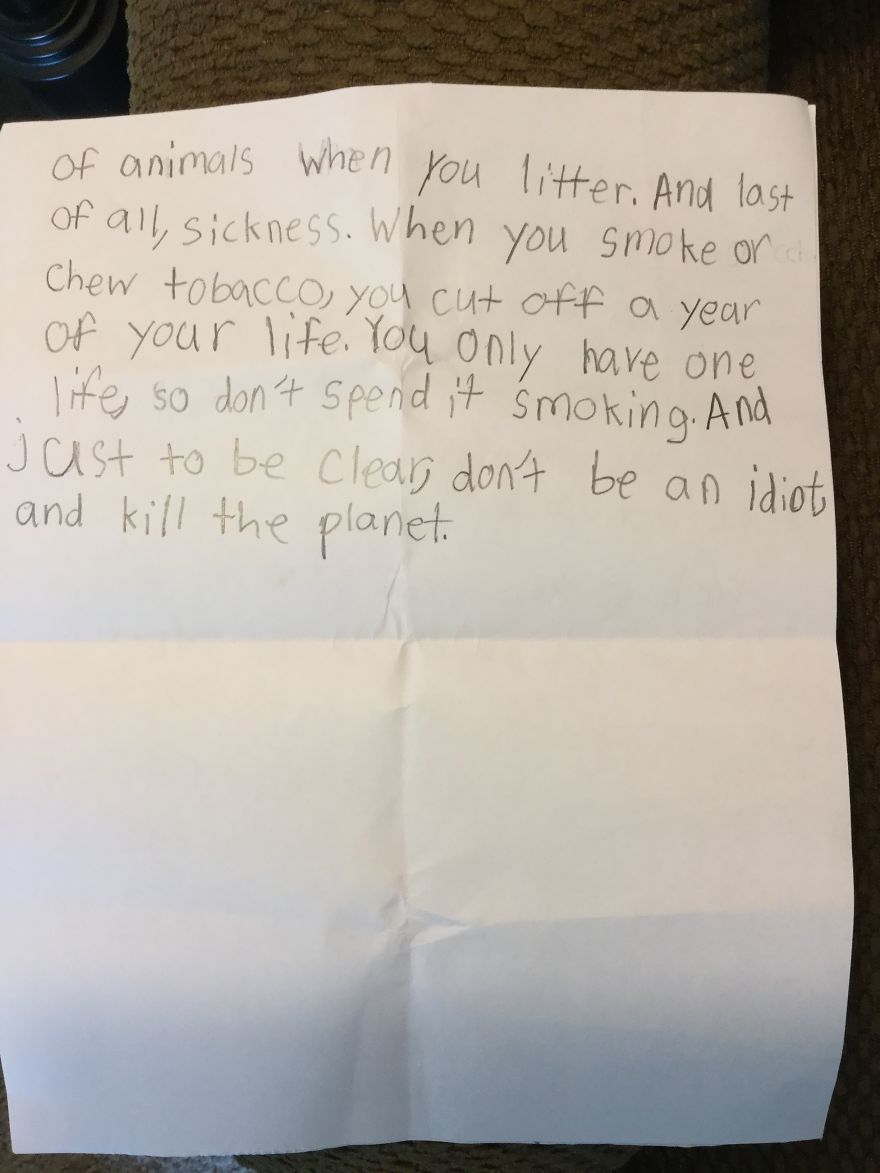 of animals when you litter. And last
of all, sickness. When you smoke or
Chew tobacco, you cut off a year
of your life. You only have one
life, so don't spend it smoking. And
just to be clear, don't be an idiot,
and kill the planet.